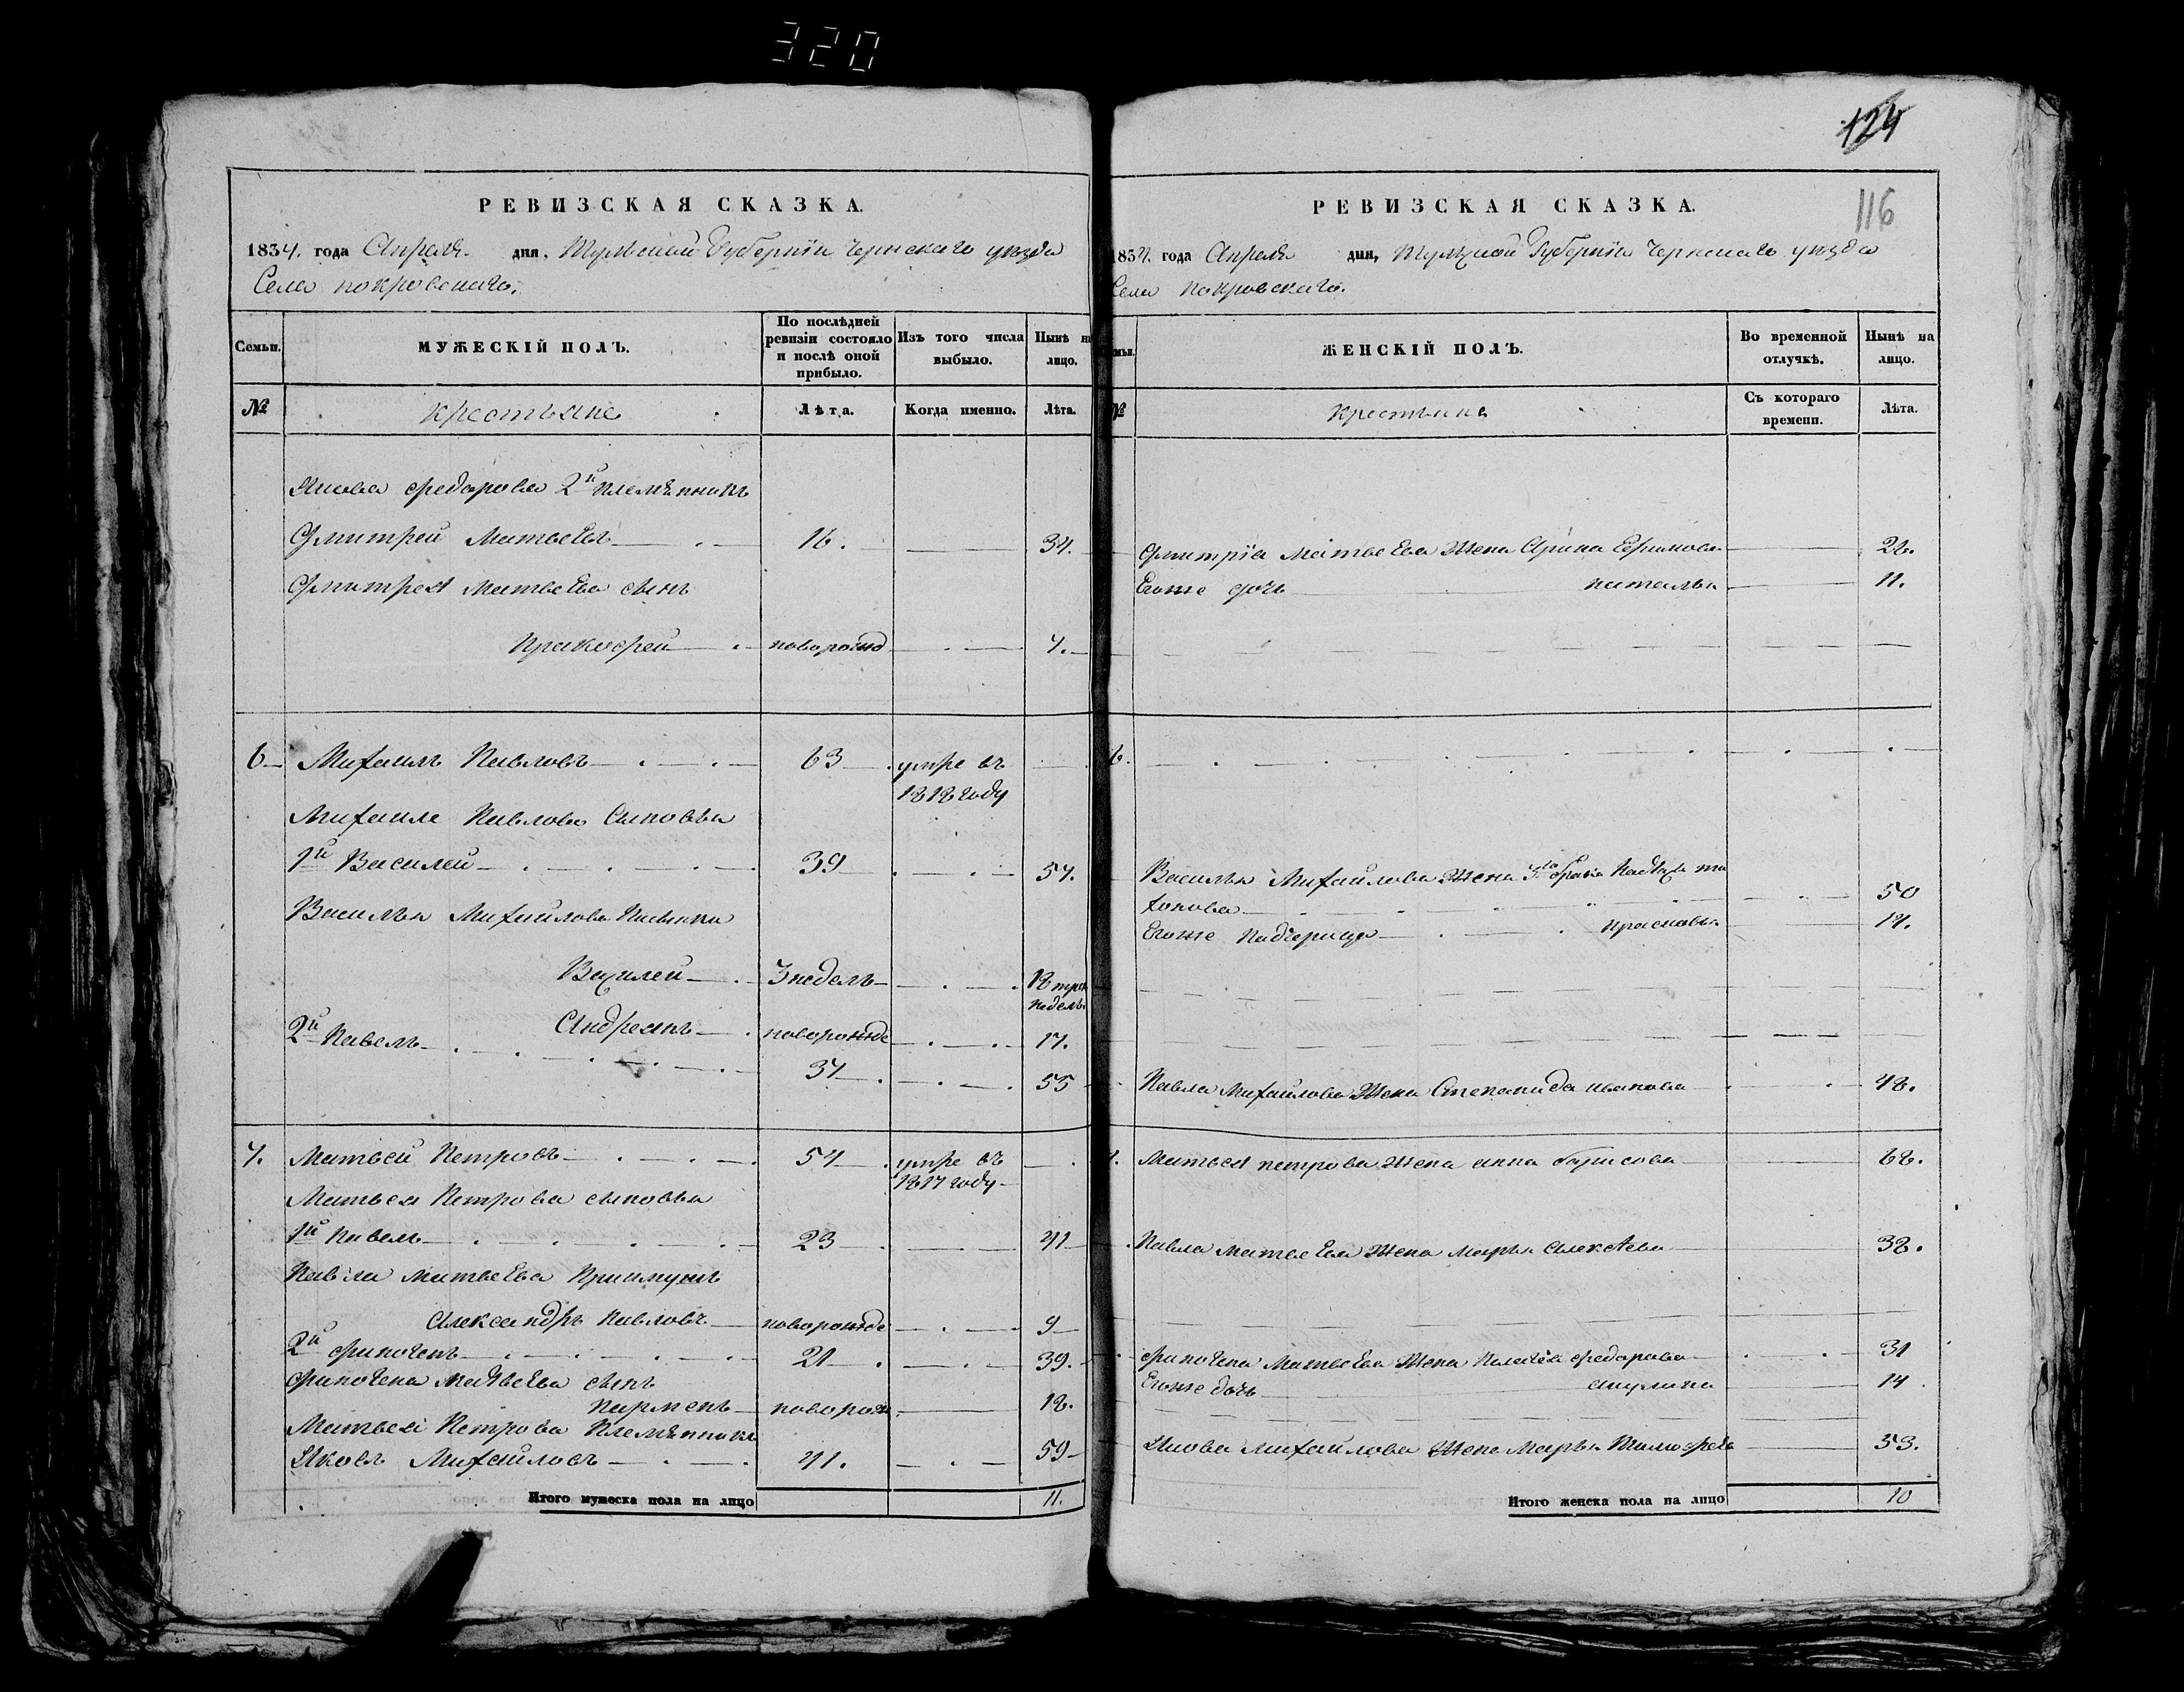 320
124
116
РЕВИЗСКАЯ СКАЗКА.
1834. года Апреля дня, Тульской Губернiи Чернскаго уезда
Села покровскаго.
Семьи.
МУЖЕСКІЙ ПОЛЪ.
По послѣдней ревизіи состояло и послѣ оной прибыло.
Изъ того числа выбыло.
Нынѣ на лицо.
№
крестьяне
Лѣта.
Когда именно.
Лѣта.
Якова Федорова 2й племѣнникъ
Дмитрей Матвеевъ 16. 34.
Дмитрея Матвеева сынъ
Пракофей новорожд 4.
6 Михаилъ Павловъ 63 умре въ
1818 году
Михаила Павлова Сыновья
1й Василей 39 57.
Василья Михайлова
Василей 3 недель 18 три
недель
Андреянъ новорожде 17.
2й Павелъ 37 55
7. Матвей Петровъ 54 умре въ
1817 году
Матвея Петрова сыновья
1й Павелъ 23 41
Павла Матвеева Приимышъ
Александръ Павловъ новорожде 9
2й Финогенъ 21 39.
Финогена Матвеева сынъ
Парменъ новорож 18.
Матвея Петрова Племѣнникъ
Яковъ Михайловъ 41. 59
Итого мужеска пола на лицо 11.
РЕВИЗСКАЯ СКАЗКА.
1834. года Апреля дня, Тульской Губернiи Чернскаго уезда
Села Покровскаго.
ЖЕНСКІЙ ПОЛЪ.
Во временной отлучкѣ.
Нынѣ на лицо.
№
крестьяне
Съ котораго времени.
Лѣта.
Дмитрiя Матвеева Жена Арина Ефимова 28.
Егоже дочь наталья 11.
6.
Василья Михайлова Жена 3го брака
50
Егоже Падчерица прасковья 14.
Павла Михайлова Жена Степанида иванова 48.
7. Матвея петрова Жена анна барисова 68.
Павла матвеева Жена марья алексѣева 38.
финогена Матвеева Жена Пелагея федорова 31
Егоже дочь акулина 14.
Якова михайлова Жена Марья Тимофеева 53.
Итого женска пола на лицо 10